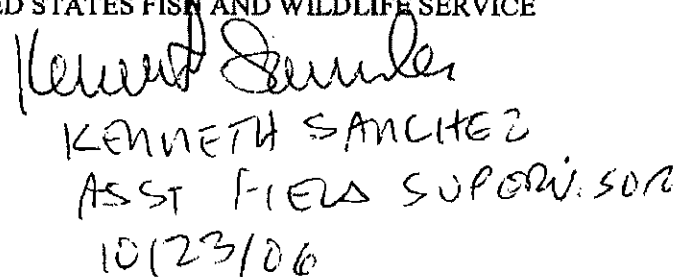 ED STATES FISH AND WILDLIFE SERVICE
Kenneth Sanchez
KENNETH SANCHEZ
ASST FIELD SUPERVISOR
10/23/06